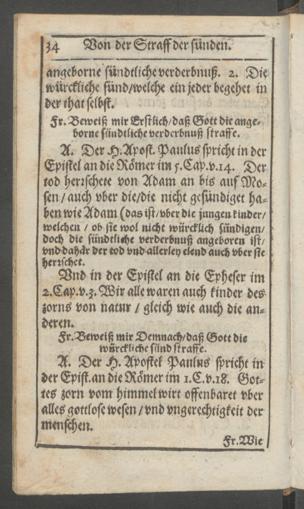 34 Von der Straff der sünden.
angeborne sündtliche verderbnuß. 2. Die
würckliche sünd/welche ein jeder begehet in
der that selbst.
Fr. Beweiß mir Erstlich/daß Gott die ange-
borne sündtliche verderbnuß straffe.
A. Der H. Apost. Paulus spricht in der
Epistel an die Römer im 5.Cap.v.14. Der
tod herrschete von Adam an bis auf Mo-
sen/auch vber die/die nicht gesündiget ha-
ben wie Adam (das ist/vber die jungen kinder/
welchen/ob sie wol nicht würcklich sündigen/
doch die sündtliche verderbnuß angeboren ist/
vnd dahär der tod vnd allerley elend auch vber sie
herrschet.
Vnd in der Epistel an die Epheser im
2.Cap.v.3. Wir alle waren auch kinder des
zorns von natur/gleich wie auch die an-
deren.
Fr. Beweiß mir Demnach/daß Gott die
würckliche sünd straffe.
A. Der H. Apostel Paulus spricht in
der Epist. an die Römer im 1.C.v.18. Got-
tes zorn vom himmel wirt offenbaret vber
alles gottlose wesen/vnd vngerechtigkeit der
menschen.
Fr. Wie